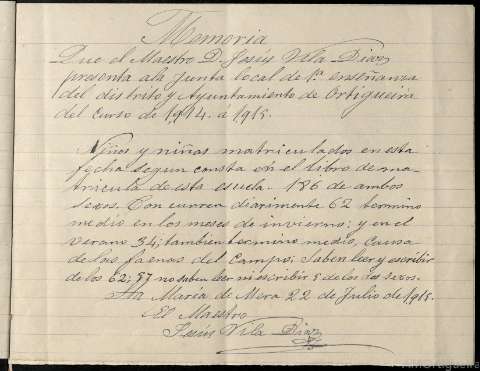 Memoria
Que el Maestro D. Jesús Vila Diaz
presenta ala Junta local de 1ª enseñanza
del distrito y Ayuntamiento de Ortigueira
del curso de 1914. á 1915.
Niños y niñas matriculados en esta
fecha segun consta en el libro de ma-
tricula de esta escuela. 186 de ambos
sexos. Con curren diarimente 62 termino
medio en los meses de invierno; y en el
verano 34; tambien termino medio, causa
de las faenas del campo; Saben leer y escribir
de los 62; 57 no saben leer ni escribir 5 de los dos sexos.
Sta Maria de Mera 22 de Julio de 1915.
El Maestro
Jesús Vila Diaz